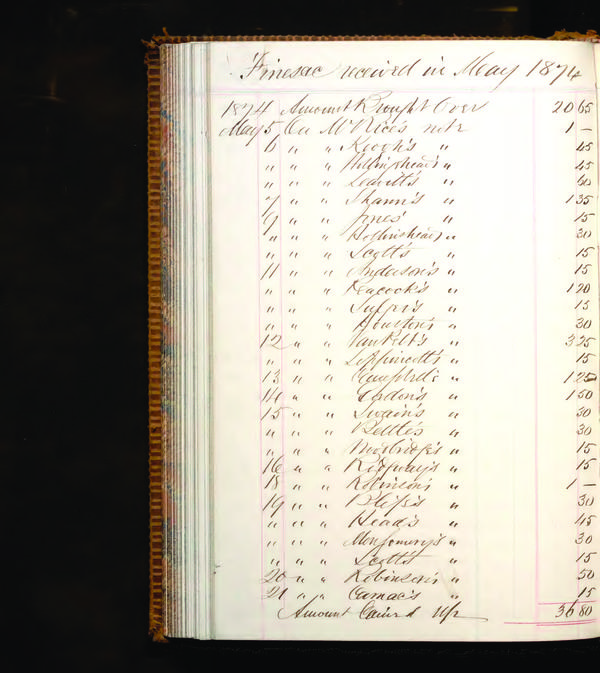 Fines &c received in May 1874
1874 Amount Brought Over 20 65
May 5, On McNiee's note 1 —
6 " " Keogh's " 45
" " " Hollingshead's " 45
" " " Leavitt's " 60
7 " " Shann's " 1 35
9 " " Jones' " 15
" " " Hollinshead's " 30
" " " Scott's " 15
11 " " Anderson's " 15
" " " Peacock's " 1 20
" " " 's " 15
" " " Houston's " 30
12 " " Van Pelt's " 3 25
" " " Lippincott's " 15
13 " " Campbell's " 1 25
14 " " Gordon's " 1 50
15 " " Swain's " 30
" " " Bettle's " 30
" " " Woodbridge's " 15
16 " " Ridgway's " 15
18 " " Robinson's " 1 —
19 " " Bliss's " 30
" " " Head's " 45
" " " Montgomery's " 30
" " " Scott's " 15
20 " " Robinson's " 50
21 " " Camac's " 15
Amount Caried Up 36 80